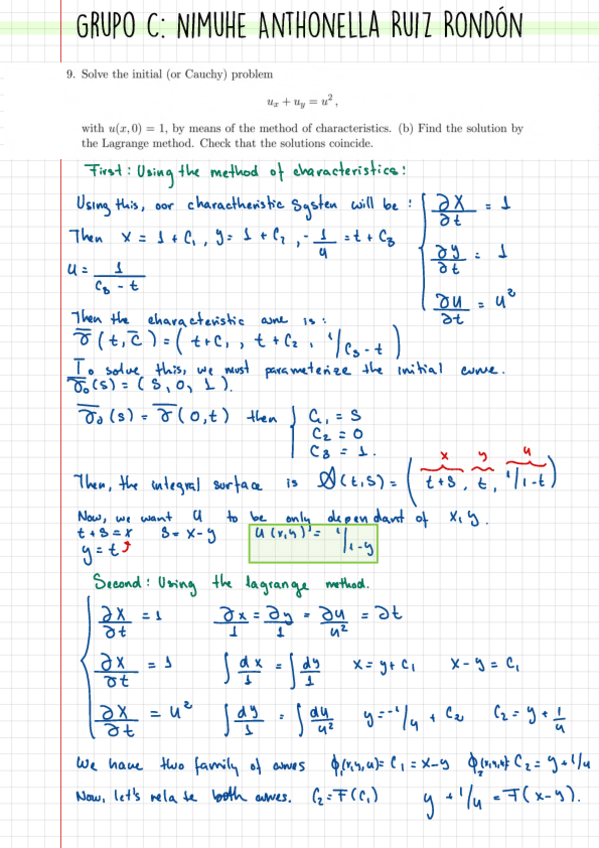 GRUPO C: NIMUHE ANTHONELLA RUIZ RONDÓN
9. Solve the initial (or Cauchy) problem
u_x + u_y = u²,
with u(x, 0) = 1, by means of the method of characteristics. (b) Find the solution by
the Lagrange method. Check that the solutions coincide.
First: Using the method of characteristics:
Using this, oor charactheristic Systen will be: { ∂x/∂t = 1
Then x = 1 + C₁, y = 1 + C₂, -1/u = t + C₃
∂y/∂t = 1
u = 1/(C₃ - t)
∂u/∂t = u²
Then the characteristic curve is:
γ̄(t, c̄) = (t+C₁, t+C₂, 1/C₃-t)
To solve this, we must parameterize the initial curve.
γ̄₀(s) = (s, 0, 1).
γ̄₀(s) = γ̄(0,t) then { C₁ = s
C₂ = 0
C₃ = 1.
x y u
Then, the integral surface is S(t,s) = (t+s, t, 1/1-t)
Now, we want u to be only dependant of x, y.
t+s=x s=x-y u(x,y) = 1/1-y
y=t
Second: Using the lagrange method.
{ ∂x/∂t = 1 ∂x/1 = ∂y/1 = ∂u/u² = ∂t
∂x/∂t = 1 ∫dx/1 = ∫dy/1 x = y + C₁ x - y = C₁
∂x/∂t = u² ∫dy/1 = ∫du/u² y = -1/u + C₂ C₂ = y + 1/u
We have two family of curves ϕ₁(x,y,u) = C₁ = x-y ϕ₂(x,y,u) = C₂ = y+1/u
Now, let's relate both curves. C₂ = F(C₁) y + 1/u = F(x-y).